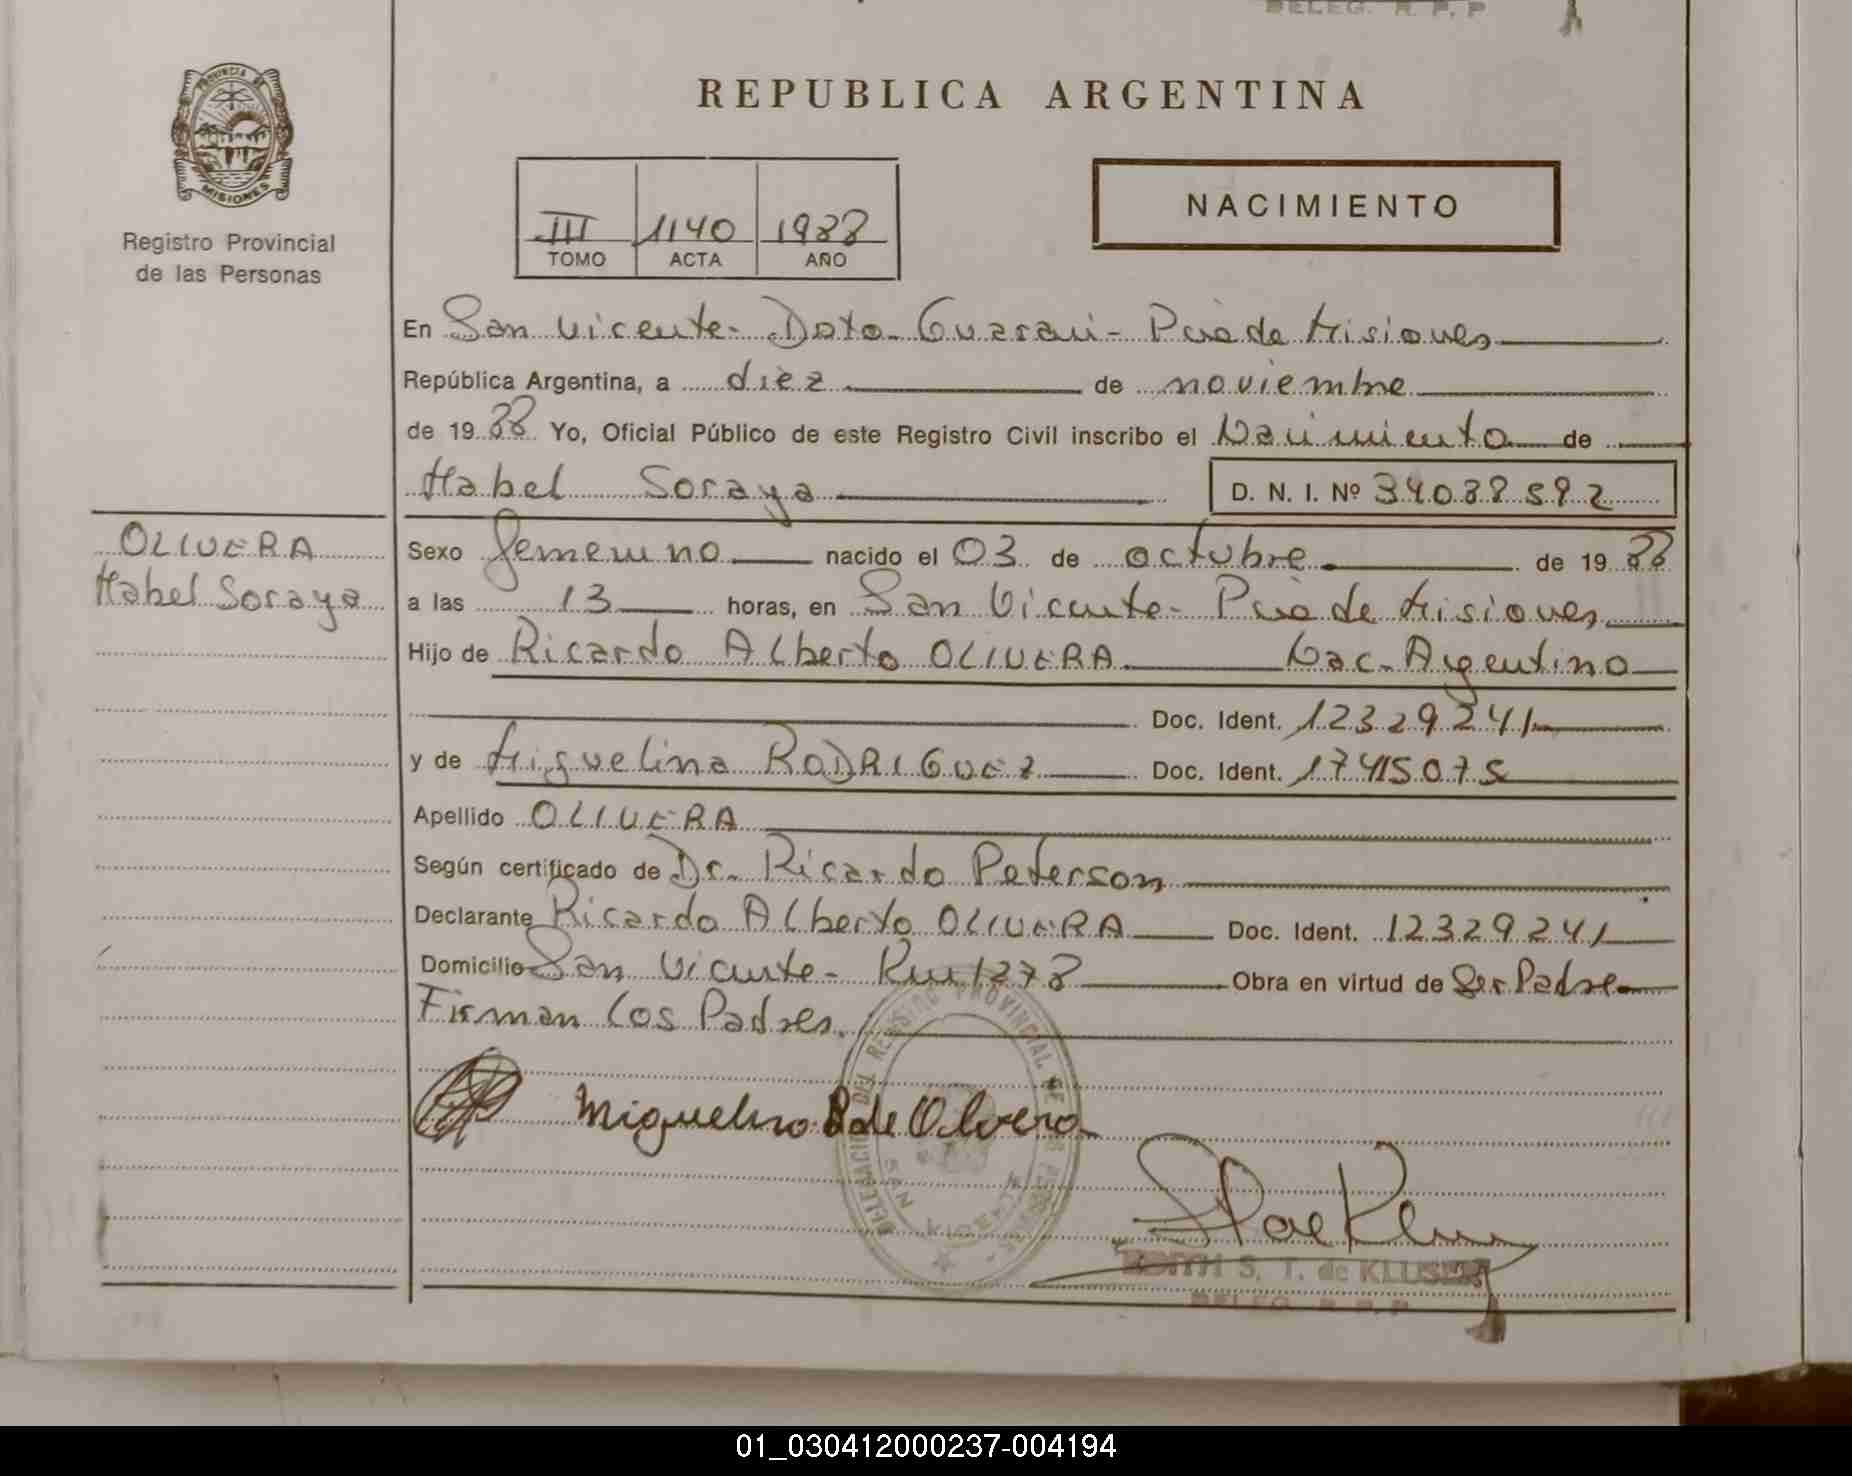 DELEG. R. P. P
REPUBLICA ARGENTINA
PROVINCIA DE
MISIONES
Registro Provincial
de las Personas
III 1140 1988
TOMO ACTA AÑO
NACIMIENTO
En San Vicente- Dpto- Guarani- Pcia de Misiones
República Argentina, a diez de noviembre
de 19 88 Yo, Oficial Público de este Registro Civil inscribo el Nacimiento de
Mabel Soraya D. N. I. Nº 34088592
OLIVERA
Mabel Soraya
Sexo femenino nacido el 03 de octubre de 19 88
a las 13 horas, en San Vicente- Pcia de Misiones
Hijo de Ricardo Alberto OLIVERA Nac. Argentino
Doc. Ident. 12329241
y de Miguelina RODRIGUEZ Doc. Ident. 17415075
Apellido OLIVERA
Según certificado de Dr. Ricardo Peterson
Declarante Ricardo Alberto OLIVERA Doc. Ident. 12329241
Domicilio San Vicente- Km 1278 Obra en virtud de Ser Padre
Firman los Padres.
Miguelina R de Olivera
DELEGACION DEL REGISTRO PROVINCIAL DE LAS PERSONAS
SAN VICENTE
EDITH S. T. de KLUSER
DELEG. R. P. P
01_030412000237-004194